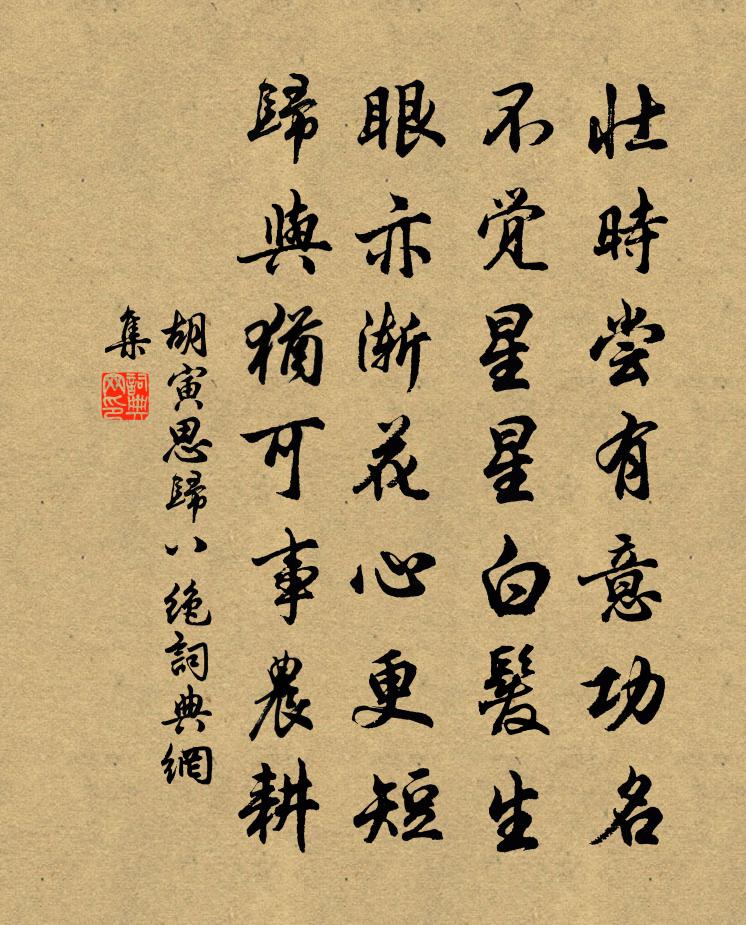 壯時尝有意功名
不覚星星白髮生
眼亦漸花心更短
歸與猶可事農耕
胡寅思歸八絶詞典網
集
詞典
网印